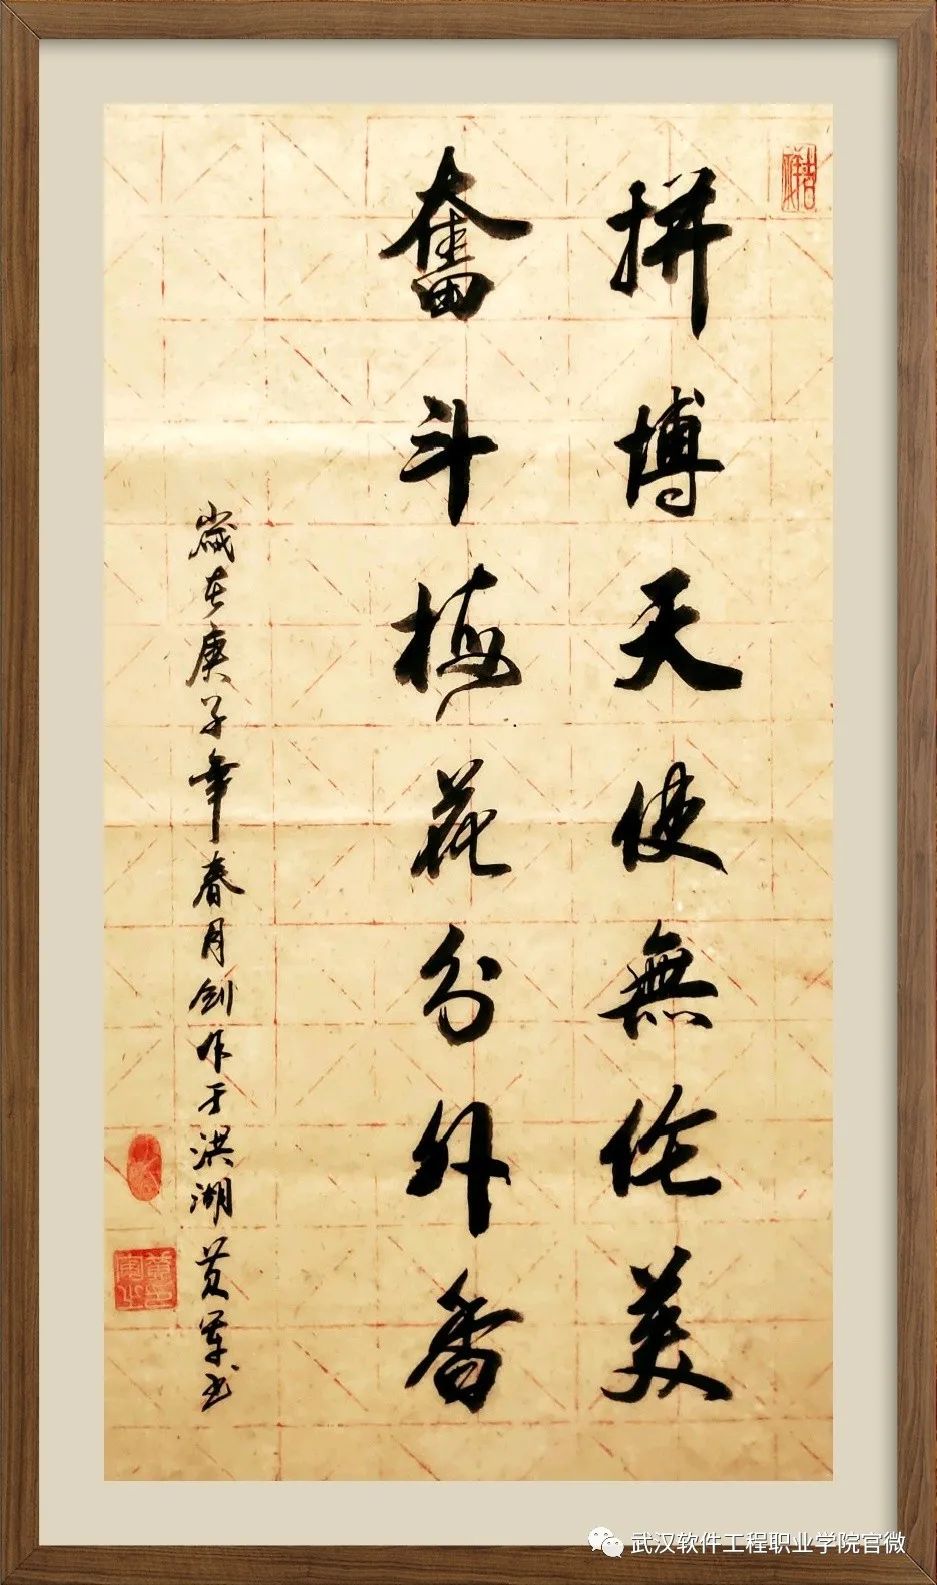 拼博天使無伦美
奮斗梅花分外香
歲在庚子年春月創作于洪湖黄军书
吉祥
武汉软件工程职业学院官微